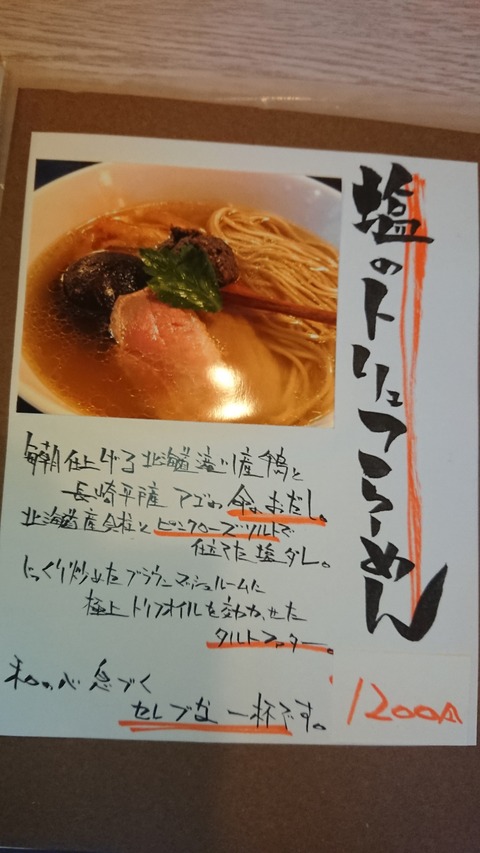 塩のトリュフらーめん
毎朝仕上げる北海道滝川産鴨と
長崎平戸産アゴの命のおだし。
北海道産昆布とピンクローズソルトで
仕立てた塩ダレ。
じっくり炒めたブラウンマッシュルームに
極上トリフオイルを効かせた
タルトファター。
和の心息づく
セレブな一杯です。
1200